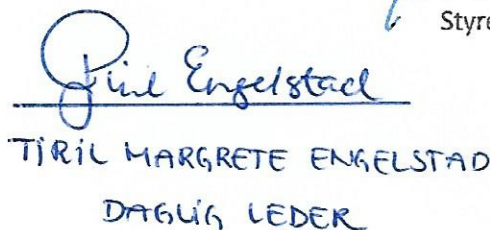 Styre
Tiril Engelstad
TIRIL MARGRETE ENGELSTAD
DAGLIG LEDER